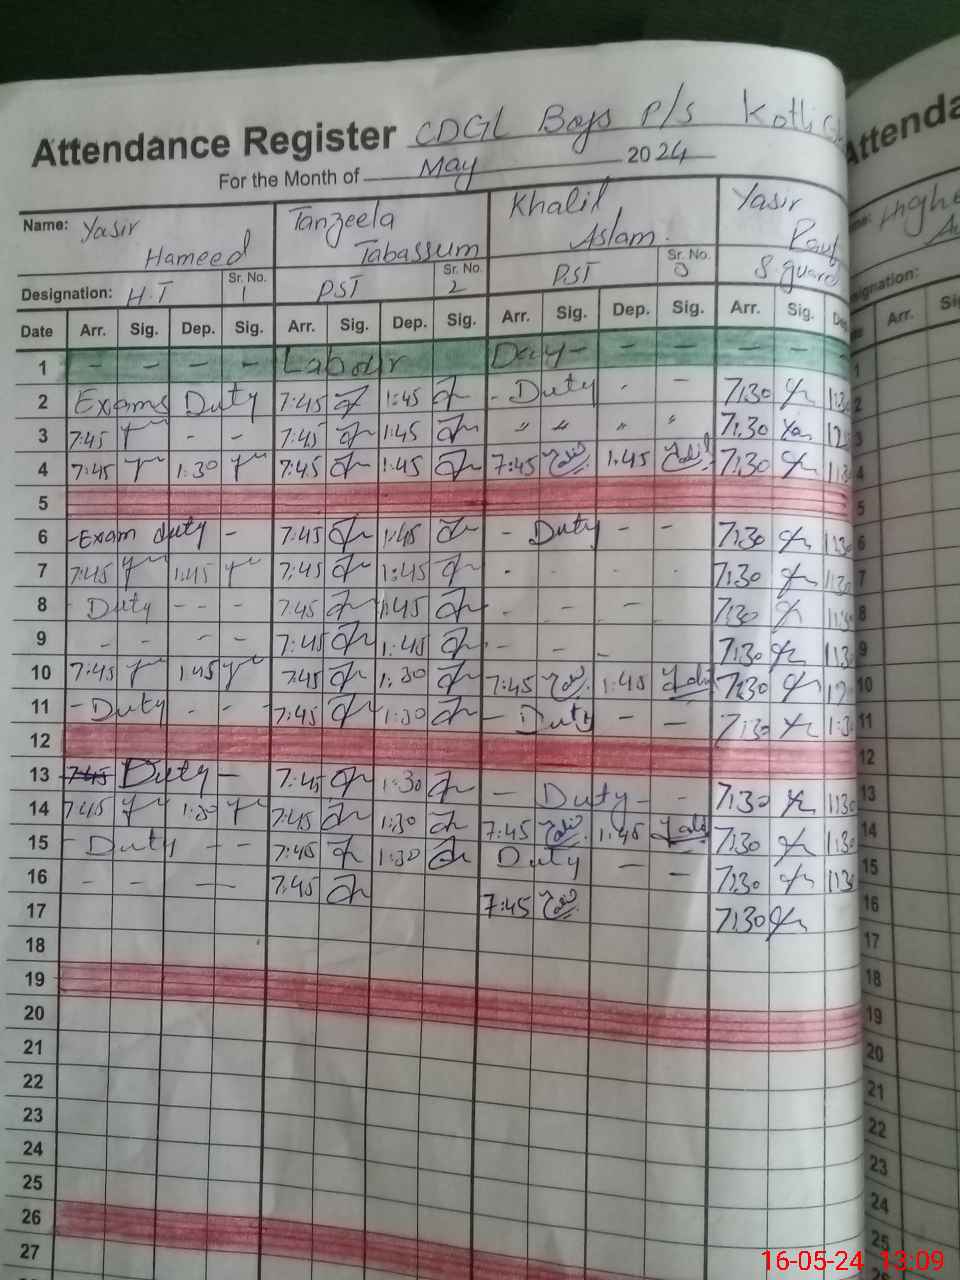 Attendance Register CDGL Boys P/S Kotli
For the Month of May 2024
Name: Yasir Hameed Tanzeela Tabassum Khalil Aslam. Yasir Rauf
Designation: H.T Sr. No. 1 PST Sr. No. 2 PST Sr. No. 3 S.guard
Date Arr. Sig. Dep. Sig. Arr. Sig. Dep. Sig. Arr. Sig. Dep. Sig. Arr. Sig.
1 - - - - Labour Day - - - -
2 Exams Duty 7:45 1:45 - Duty - - 7:30
3 7:45 - - 7:45 1:45 " " " " 7:30
4 7:45 1:30 7:45 1:45 7:45 1:45 7:30
5
6 -Exam duty - 7:45 1:45 - Duty - - 7:30
7 7:45 1:45 7:45 1:45 - - - - 7:30
8 - Duty - - 7:45 1:45 - - - 7:30
9 - - - - 7:45 1:45 - - - 7:30
10 7:45 1:45 7:45 1:30 7:45 1:45 7:30
11 - Duty - - 7:45 1:30 - Duty - - 7:30
12
13 7:45 Duty - 7:45 1:30 - Duty - - 7:30
14 7:45 1:30 7:45 1:30 7:45 1:45 7:30
15 - Duty - - 7:45 1:30 Duty - - 7:30
16 - - - 7:45 7:45 7:30
17
18
19
20
21
22
23
24
25
26
27
Attenda
Arr.
1
2
3
4
5
6
7
8
9
10
11
12
13
14
15
16
17
18
19
20
21
22
23
24
25
16-05-24 13:09